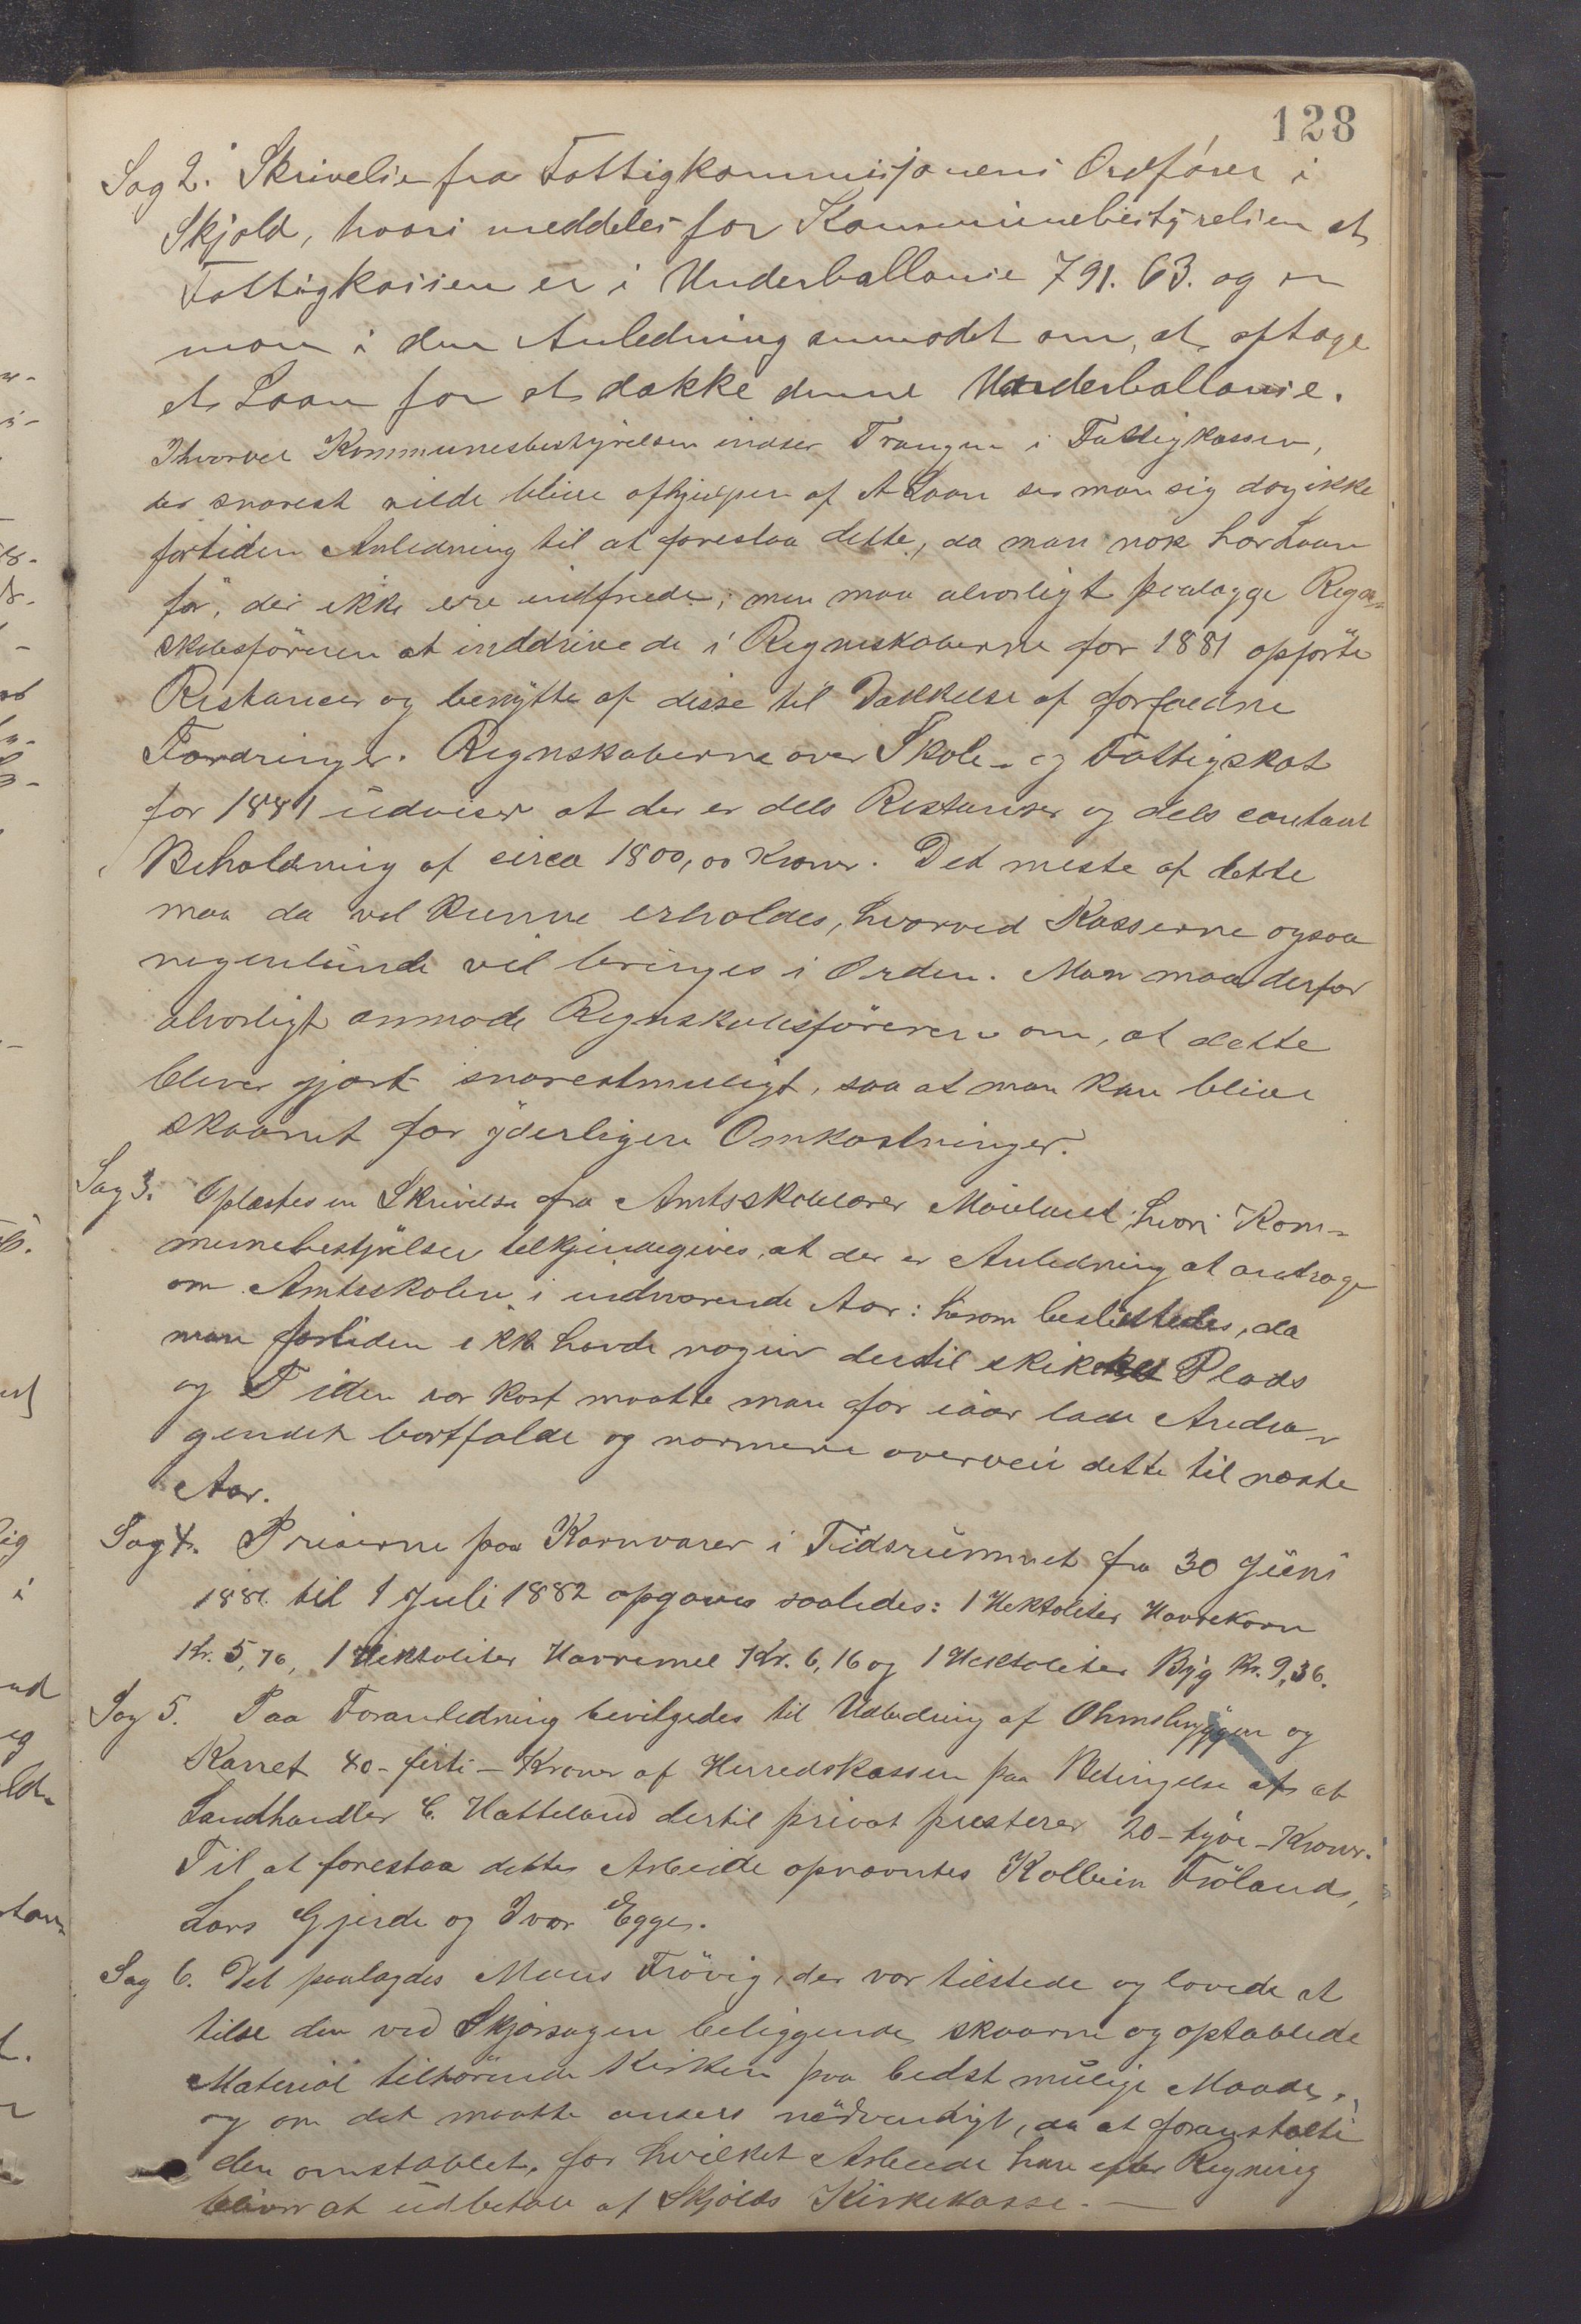 128
Sag 2. Skrivelse fra Fattigkommisjonens Ordfører i
Skjold, hvori meddeles for Kommunebestyrelsen at
Fattigkassen er i Underballanse 791. 63. og er
man i den Anledning anmodet om, at optage
et Laan for at dække denne Underballanse.
Ihvorvel Kommunesbestyrelsen indser Trangen i Fattigkassen,
der snarest vilde blive afhjulpen af et Laan ser man sig dog ikke
fortiden Anledning til at forestaa dette, da man nok har Laan
før, der ikke ere indfriede; men maa alvorligt paalægge Regn-
skabsføreren at inddrive de i Regneskaberne for 1881 opførte
Restancer og benytte af disse til Dækkelse af forfaldne
Fordringer. Regnskaberne over Skole- og Fattigskat
for 1881 udviser at der er dels Restanser og dels contant
Beholdning af circa 1800,00 Kroner. Det meste af dette
maa da vel kunne erholdes, hvorved Kasserne ogsaa
nogenlunde vil bringes i Orden. Man maa derfor
alvorligt anmode Regnskabsføreren om, at dette
bliver gjort snarestmuligt, saa at man kan blive
skaanet for yderligere Omkostninger.
Sag 3. Oplæstes en Skrivelse fra Amtsskolelærer hvori Kom-
munebestyrelsen tilkjendegives, at der er Anledning at andrage
om Amtsskolen i indværende Aar: herom besluttedes, da
man fortiden ikke havde nogen dertil skikket Plads
og Tiden var kort maatte man for iaar lade Andra-
gendet bortfalde og nærmere overveie dette til næste
Aar.
Sag 4. Priserne paa Kornvarer i Tidsrummet fra 30 Juni
1881 til 1 Juli 1882 opgaves saaledes: 1 Hektoliter Havrekorn
Kr. 5,76, 1 Hektoliter Havremel Kr. 6,16 og 1 Hektoliter Byg Kr. 9,36.
Sag 5. Paa Foranledning bevilgedes til Udbedring af Ohmsbryggen og
Karret 40 - firti - Kroner af Herredskassen paa Betingelse af at
Landhandler C. Hatteland dertil privat presterer 20 - tyve - Kroner.
Til at forestaa dette Arbeide opnævntes Kolbein Frøland,
Lars Gjerde og Ivar Egge.
Sag 6. Det paalagdes Maus Frövig, der var tilstede og lovede at
tilse den ved Skjorsagen beliggende skaarne og opstablede
Material tilhørende Kirken paa bedst mulige Maade,
og om det maatte ansees nødvendigt, da at foranstalte
den omstablet, for hvilket Arbeide han efter Regning
bliver at udbetale af Skjolds Kirkekasse. —